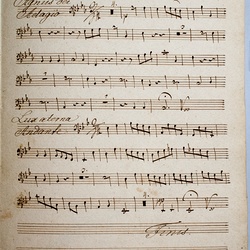 Agnus Dei
Adagio
Lux aeterna
Andante
Finis